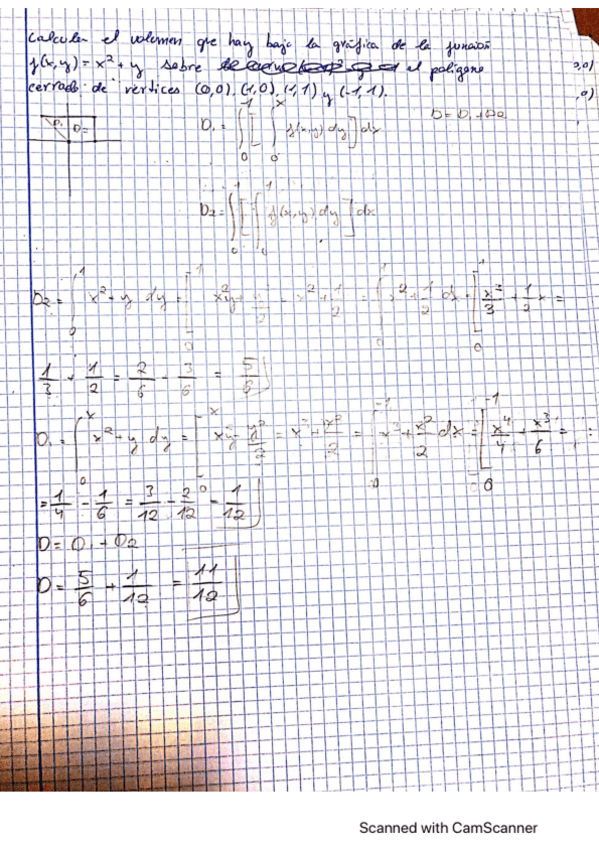 Calcula el volumen que hay bajo la gráfica de la función
f(x,y) = x² + y sobre el polígono
cerrado de vértices (0,0), (1,0), (1,1) y (-1,1).
D₁ D₂
D₁ = ∫₀⁻¹ [ ∫₀ˣ f(x,y) dy ] dx D = D₁ + D₂
D₂ = ∫₀¹ [ ∫₀¹ f(x,y) dy ] dx
D₂ = ∫₀¹ x² + y dy = [ x²y + y²/2 = x² + 1/2 = ∫₀¹ x² + 1/2 dx = [ x³/3 + 1/2 x =
1/3 + 1/2 = 2/6 + 3/6 = 5/6
D₁ = ∫₀ˣ x² + y dy = [ x²y + y²/2 = x³ + x²/2 = ∫₀⁻¹ x³ + x²/2 dx = [ x⁴/4 + x³/6 =
= 1/4 - 1/6 = 3/12 - 2/12 = 1/12
D = D₁ + D₂
D = 5/6 + 1/12 = 11/12
Scanned with CamScanner